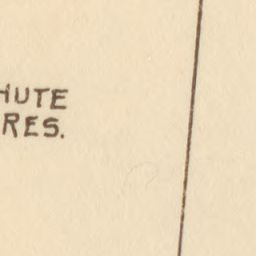 HUTE
RES.